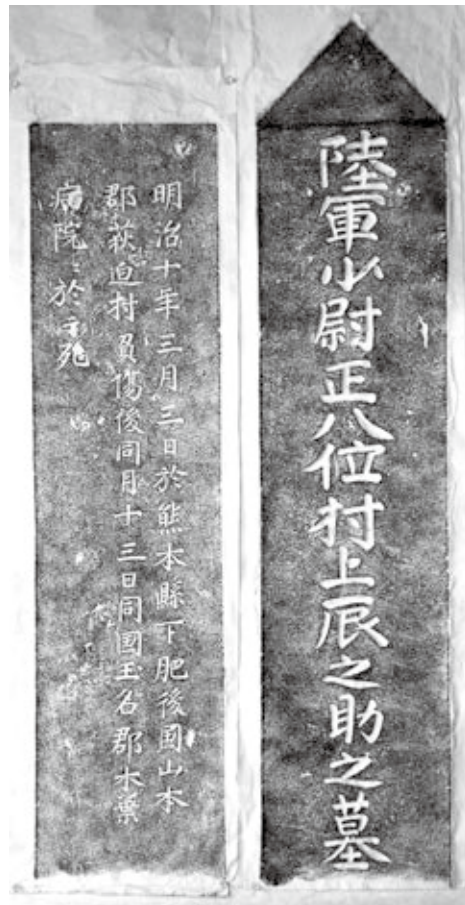 陸軍少尉正八位村上辰之助之墓
明治十年三月三日於熊本縣下肥後國山本
郡荻迫村負傷後同月十三日同國玉名郡木葉
病院ニ於テ死